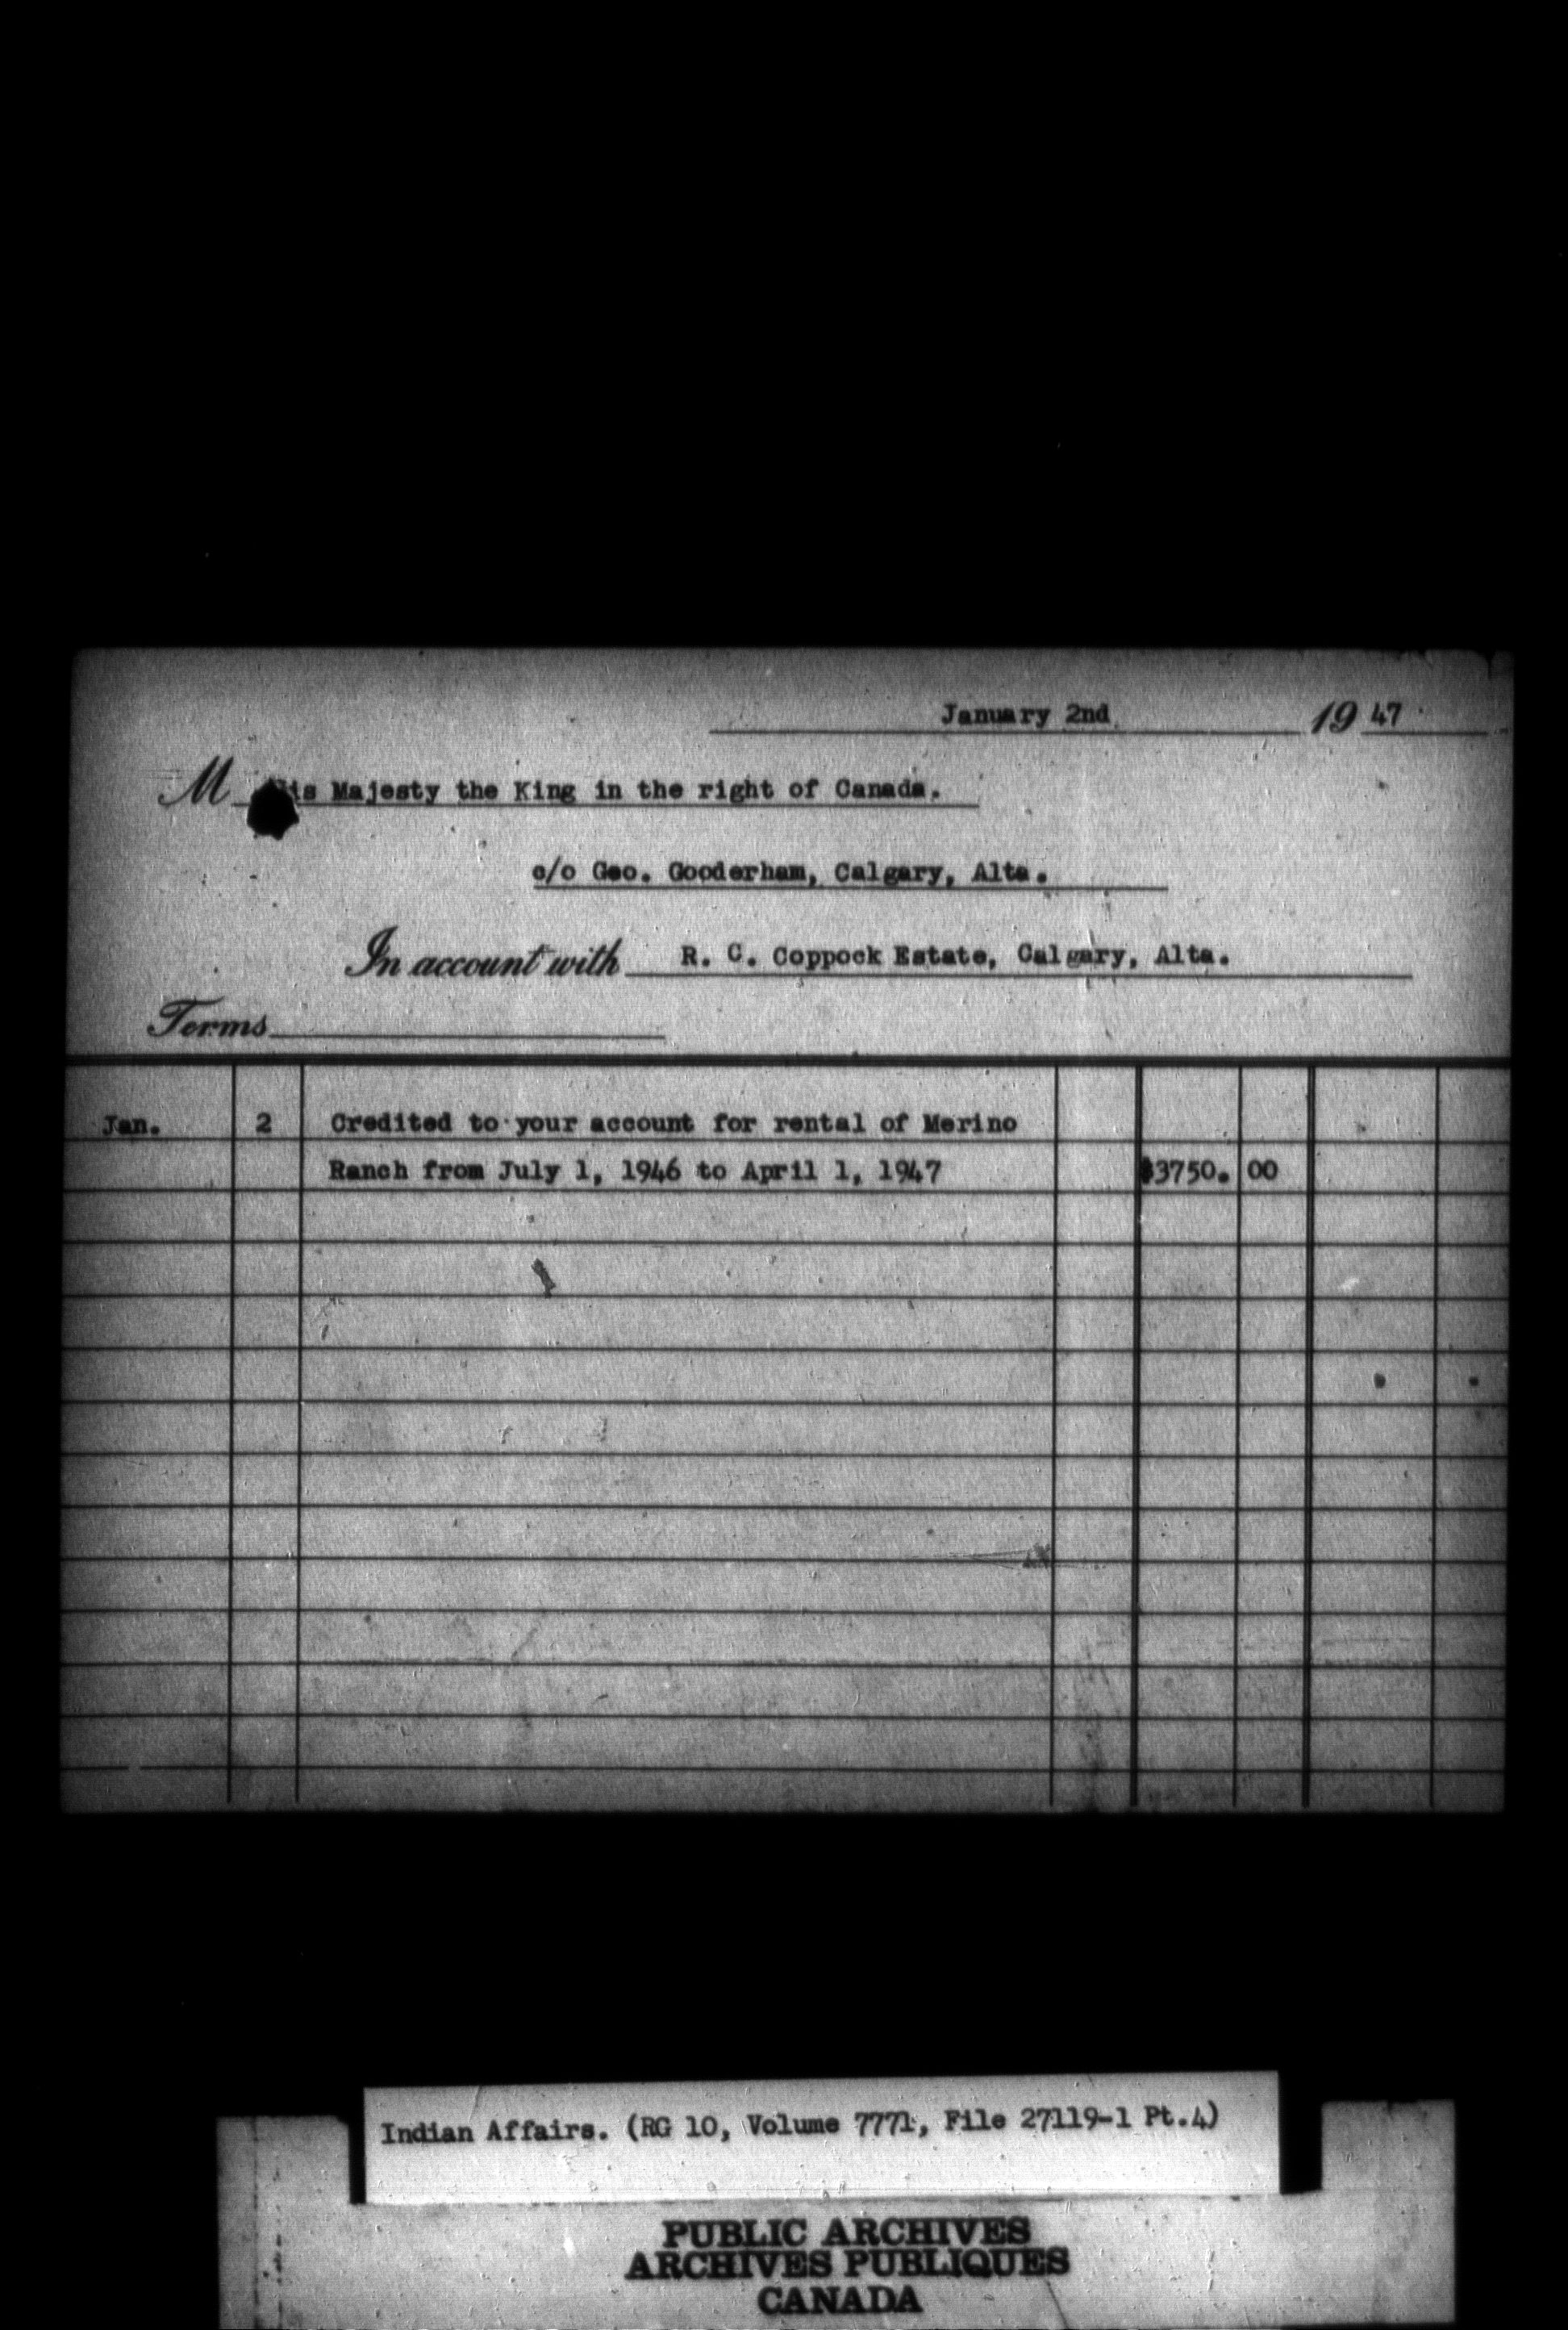 January 2nd 19 47
M His Majesty the King in the right of Canada.
c/o Geo. Gooderham, Calgary, Alta.
In account with R. C. Coppock Estate, Calgary, Alta.
Terms
Jan. 2 Credited to your account for rental of Merino
Ranch from July 1, 1946 to April 1, 1947 $3750. 00
Indian Affairs. (RG 10, Volume 7771, File 27119-1 Pt.4)
PUBLIC ARCHIVES
ARCHIVES PUBLIQUES
CANADA